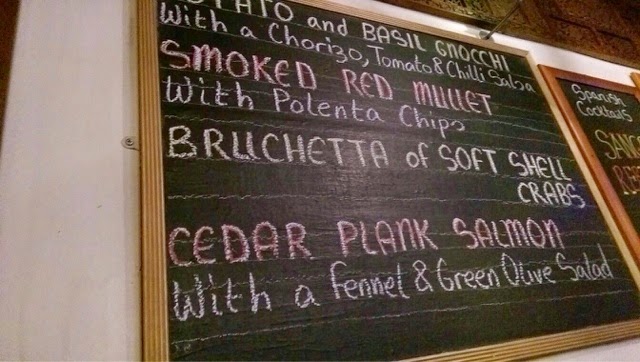 and BASIL GNOCCHI
With a Chorizo, Tomato & Chilli Salsa
SMOKED RED MULLET
With Polenta Chips
BRUCHETTA of SOFT SHELL
CRABS
CEDAR PLANK SALMON
With a Fennel & Green Olive Salad
Spanish
Cocktails